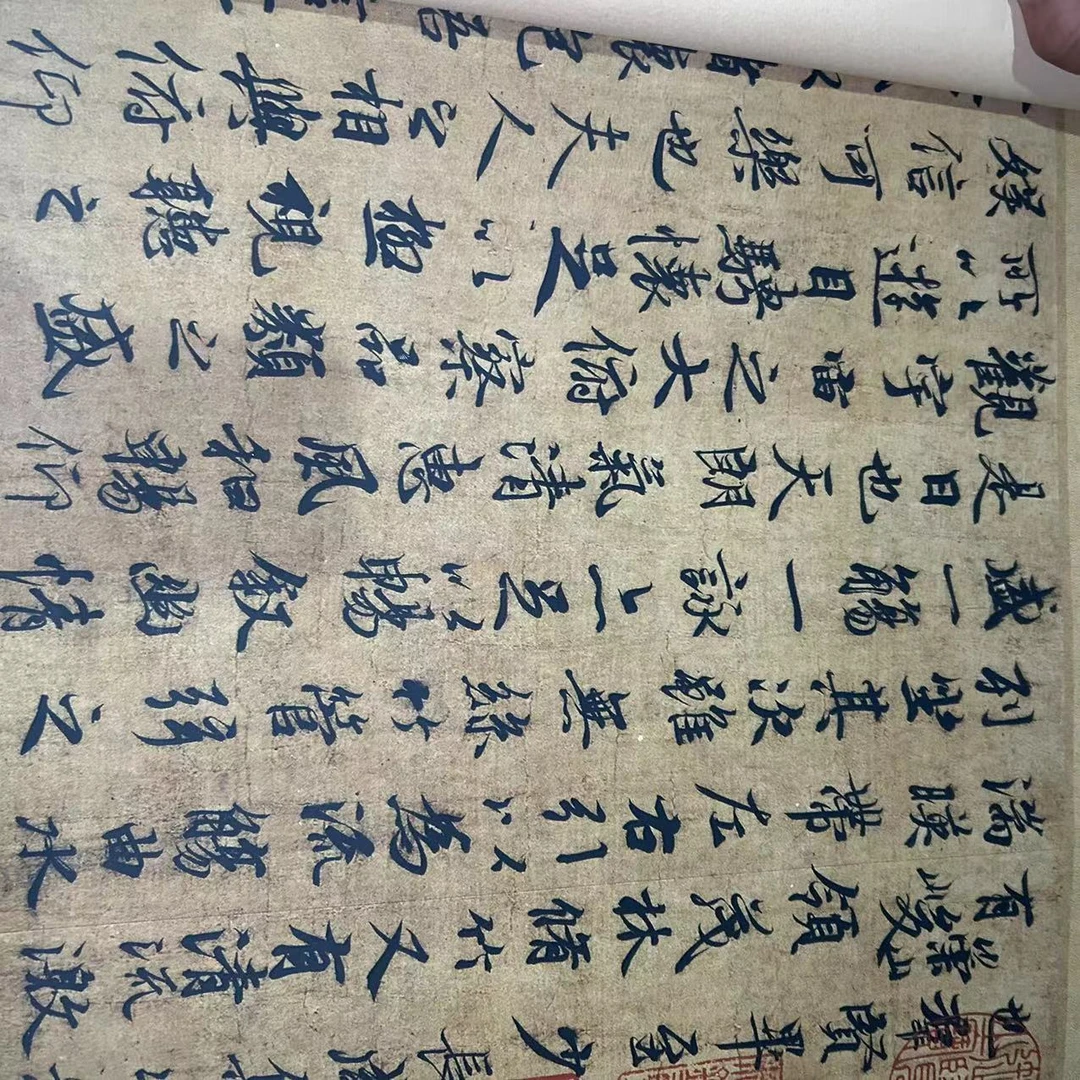 也羣賢畢至少長咸
有崇山峻領茂林脩竹又有清流激
湍暎帶左右引以為流觴曲水
列坐其次雖無絲竹管弦之
盛一觴一詠亦足以暢叙幽情
是日也天朗氣清惠風和暢仰
觀宇宙之大俯察品類之盛
所以遊目騁懷足以極視聽之
娛信可樂也夫人之相與俯仰
諸懷抱悟言